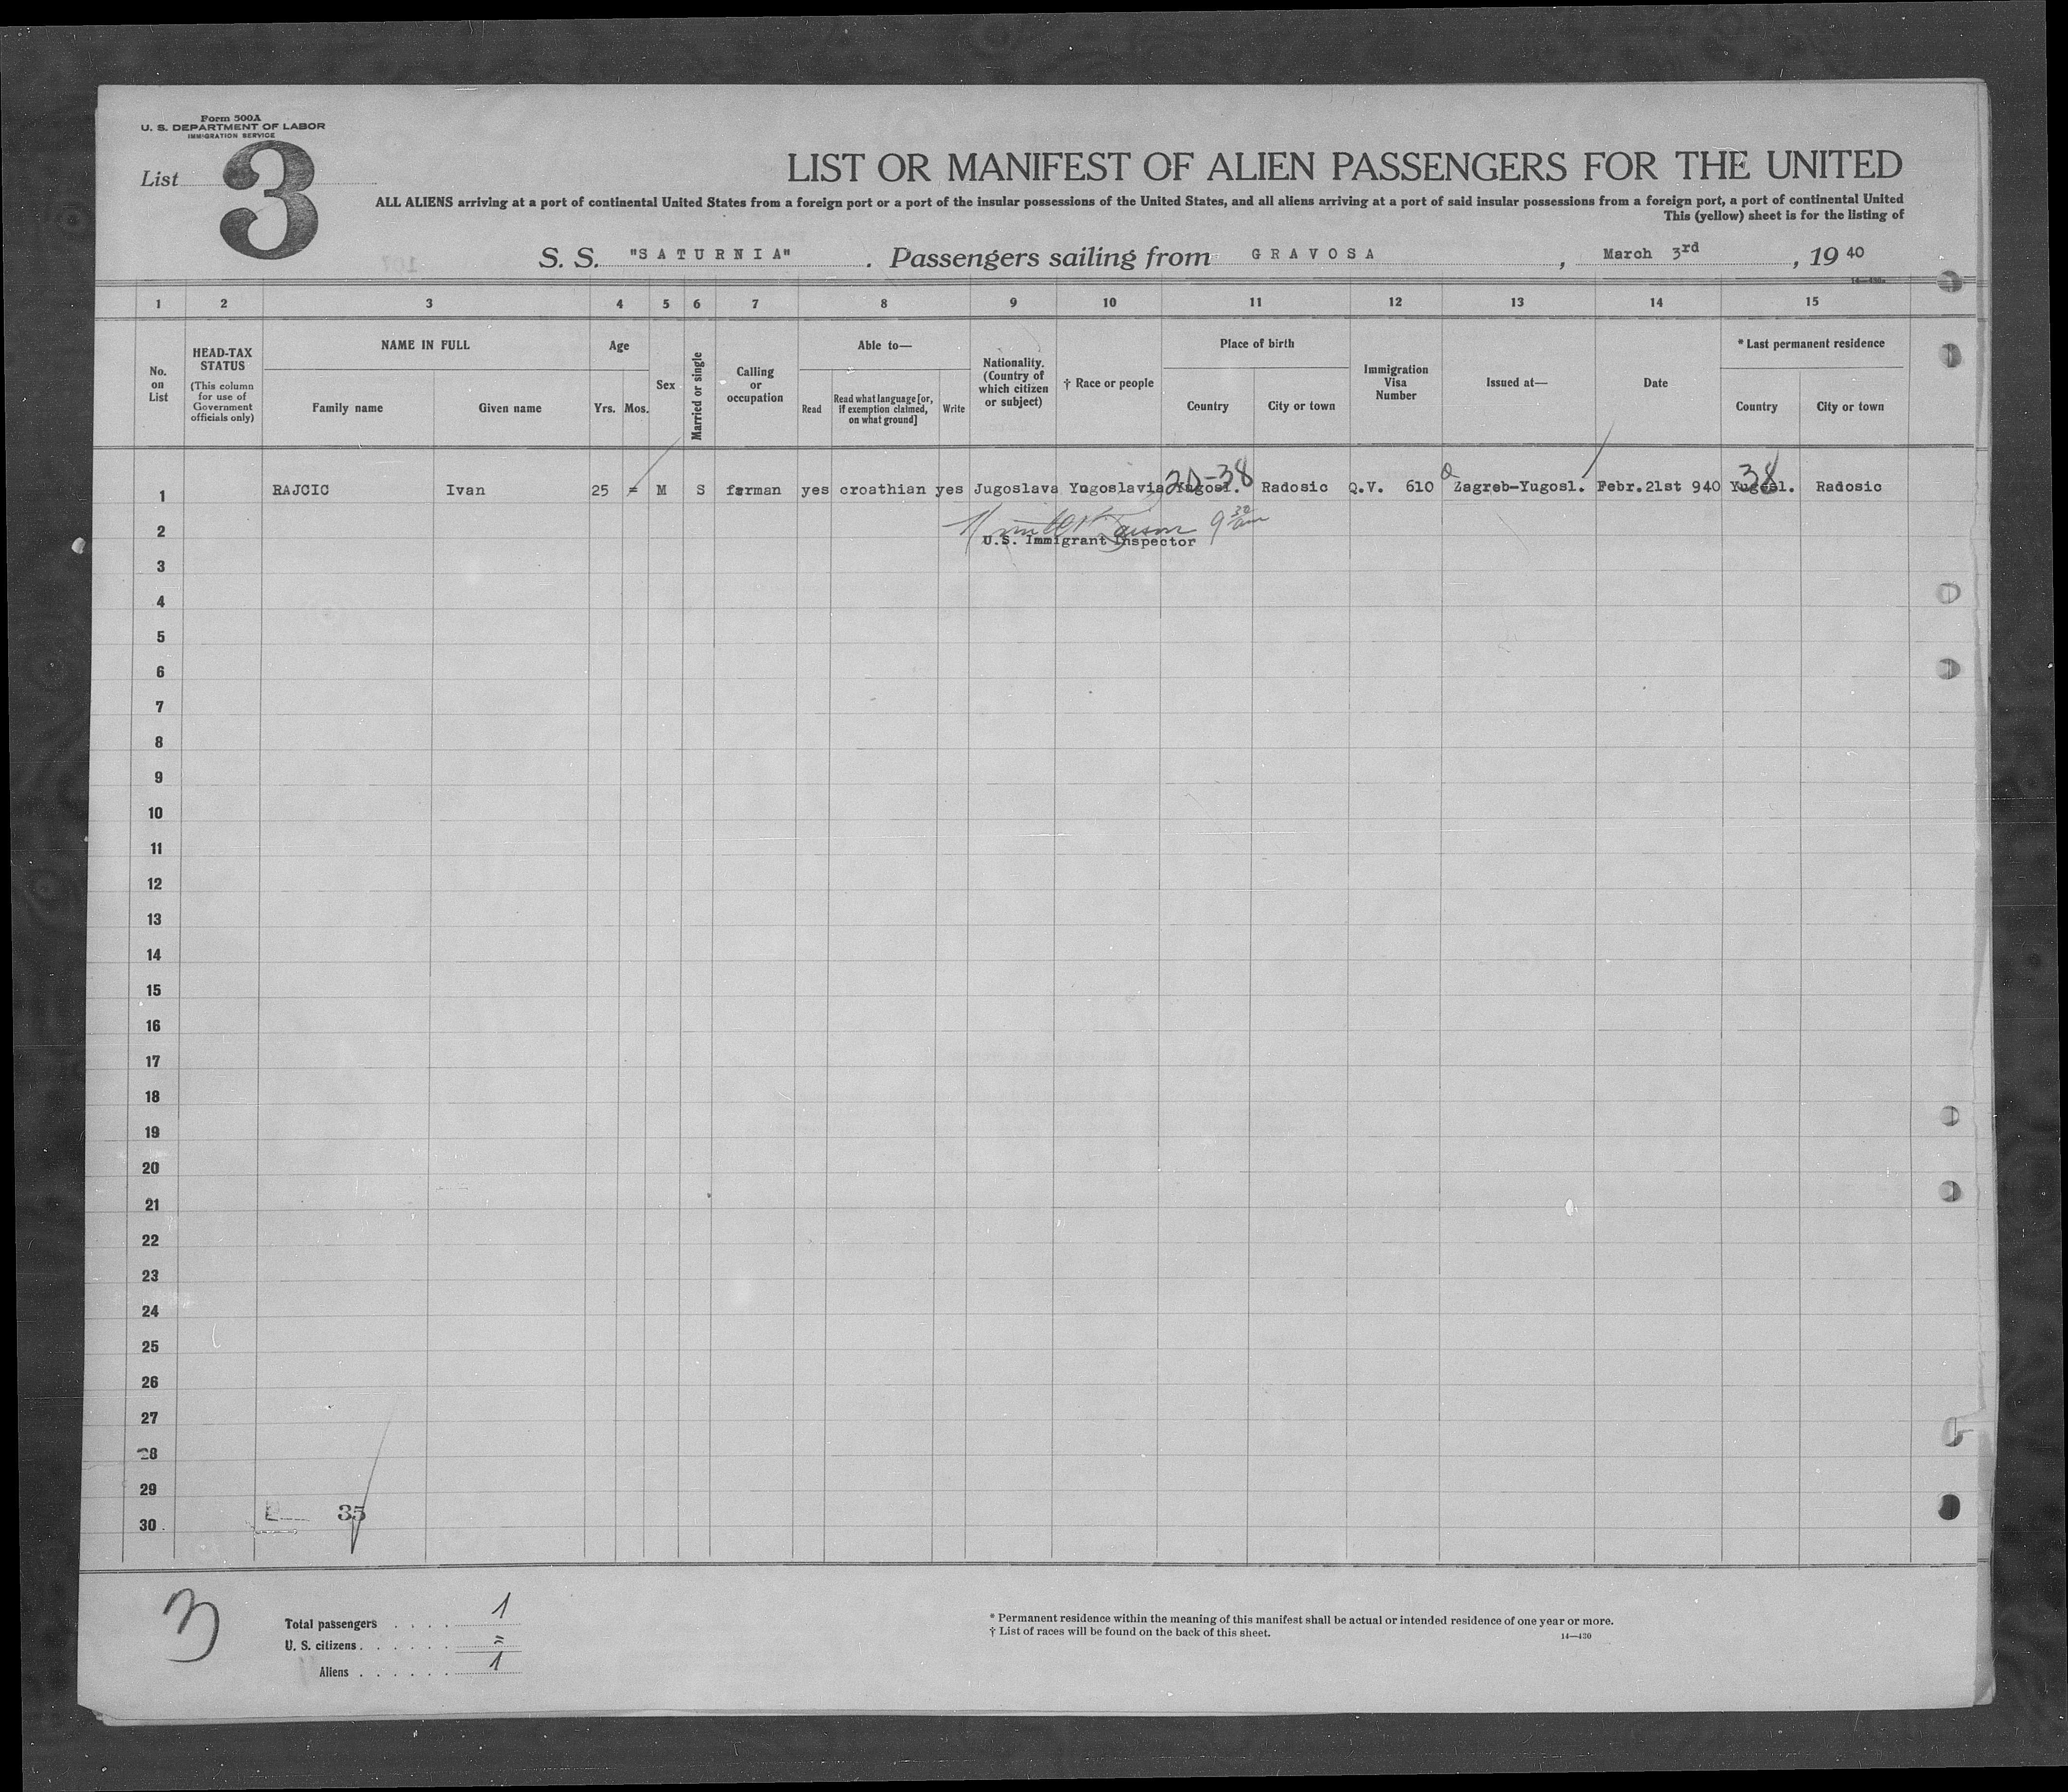 Form 500A
U. S. DEPARTMENT OF LABOR
IMMIGRATION SERVICE
List 3
LIST OR MANIFEST OF ALIEN PASSENGERS FOR THE UNITED
ALL ALIENS arriving at a port of continental United States from a foreign port or a port of the insular possessions of the United States, and all aliens arriving at a port of said insular possessions from a foreign port, a port of continental United
This (yellow) sheet is for the listing of
S. S. "SATURNIA" . Passengers sailing from GRAVOSA , March 3rd , 19 40
1 2 3 4 5 6 7 8 9 10 11 12 13 14 15
No. on List
HEAD-TAX STATUS (This column for use of Government officials only)
NAME IN FULL
Family name
Given name
Age
Yrs. Mos.
Sex
Married or single
Calling or occupation
Able to—
Read
Read what language [or, if exemption claimed, on what ground]
Write
Nationality. (Country of which citizen or subject)
† Race or people
Place of birth
Country
City or town
Immigration Visa Number
Issued at—
Date
* Last permanent residence
Country
City or town
20-38 38
1 RAJCIC Ivan 25 = M S farman yes croathian yes Jugoslava Yugoslavia Yugosl. Radosic Q.V. 610 Zagreb-Yugosl. Febr.21st 940 Yugosl. Radosic
9 30 am
2
U.S. Immigrant Inspector
3
4
5
6
7
8
9
10
11
12
13
14
15
16
17
18
19
20
21
22
23
24
25
26
27
28
29
35
30
3
Total passengers . . . . 1
U. S. citizens . . . . . . =
Aliens . . . . . . 1
* Permanent residence within the meaning of this manifest shall be actual or intended residence of one year or more.
† List of races will be found on the back of this sheet.
14—430